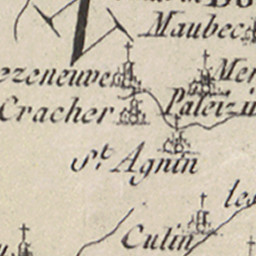 Maubec
ezeneuve
Mer
Cracher
Paleizi
S.t Agnin
les
Culin